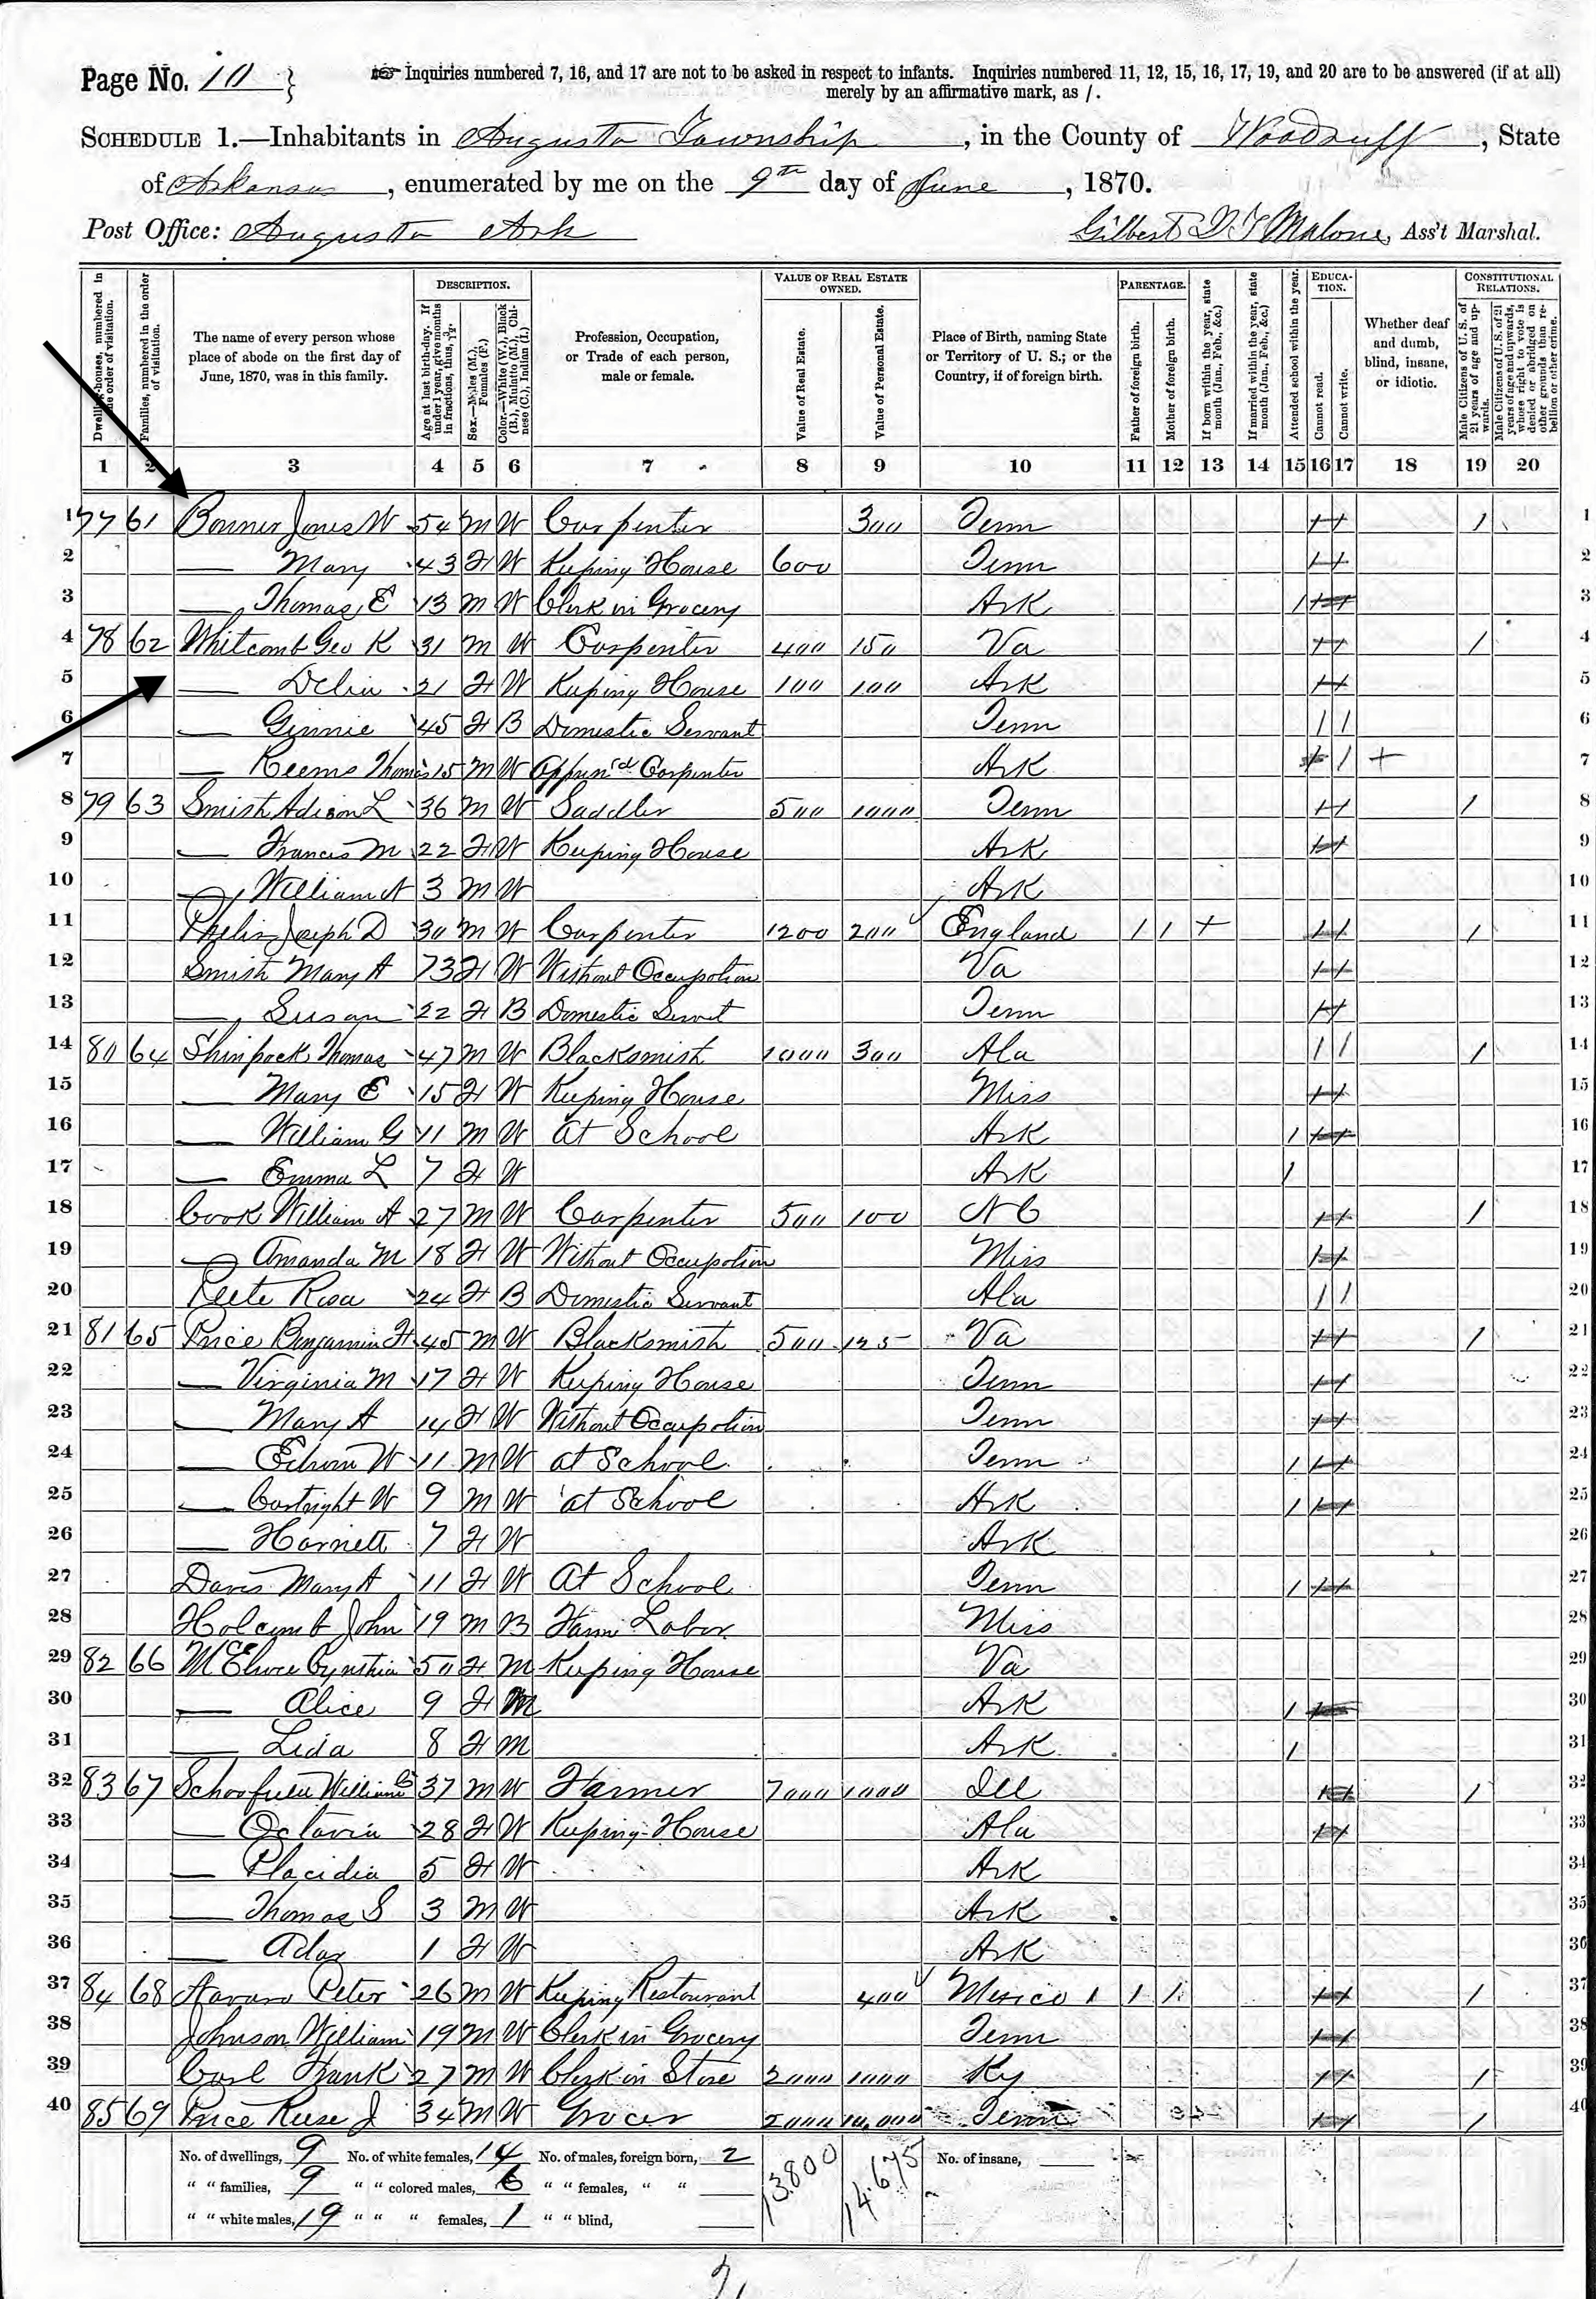 Page No. 10 }
Inquiries numbered 7, 16, and 17 are not to be asked in respect to infants. Inquiries numbered 11, 12, 15, 16, 17, 19, and 20 are to be answered (if at all)
merely by an affirmative mark, as /.
SCHEDULE 1.—Inhabitants in Augusta Township, in the County of Woodruff, State
of Arkansas, enumerated by me on the 9th day of June, 1870.
Post Office: Augusta Ark Gilbert Malone, Ass't Marshal.
Dwelling-houses, numbered in the order of visitation.
Families, numbered in the order of visitation.
The name of every person whose place of abode on the first day of June, 1870, was in this family.
DESCRIPTION.
Age at last birth-day. If under 1 year, give months in fractions, thus, 3/12.
Sex.—Males (M.), Females (F.)
Color.—White (W.), Black (B.), Mulatto (M.), Chinese (C.), Indian (I.)
Profession, Occupation, or Trade of each person, male or female.
VALUE OF REAL ESTATE OWNED.
Value of Real Estate.
Value of Personal Estate.
Place of Birth, naming State or Territory of U. S.; or the Country, if of foreign birth.
PARENTAGE.
Father of foreign birth.
Mother of foreign birth.
If born within the year, state month (Jan., Feb., &c.)
If married within the year, state month (Jan., Feb., &c.)
Attended school within the year.
EDUCATION.
Cannot read.
Cannot write.
Whether deaf and dumb, blind, insane, or idiotic.
CONSTITUTIONAL RELATIONS.
Male Citizens of U. S. of 21 years of age and upwards.
Male Citizens of U. S. of 21 years of age and upwards, whose right to vote is denied or abridged on other grounds than rebellion or other crime.
1 2 3 4 5 6 7 8 9 10 11 12 13 14 15 16 17 18 19 20
1 77 61 Bonner Jones W 54 M W Carpenter 300 Tenn 1 1
2 — Mary 43 F W Keeping House 600 Tenn 2
3 — Thomas E 13 M W Clerk in Grocery Ark 1 3
4 78 62 Whitcomb Geo K 31 M W Carpenter 400 150 Va 1 4
5 — Delia 21 F W Keeping House 100 100 Ark 5
6 — Ginnie 45 F B Domestic Servant Tenn 1 1 6
7 — Reems Thomas 15 M W Appren'd Carpenter Ark 1 + 7
8 79 63 Smith Adison L 36 M W Saddler 500 1000 Tenn 1 8
9 — Francis M 22 F W Keeping House Ark 9
10 — William A 3 M W Ark 10
11 Joseph D 30 M W Carpenter 1200 200 England 1 1 + 1 11
12 Smith Mary A 73 F W Without Occupation Va 12
13 — Susan 22 F B Domestic Servt Tenn 13
14 80 64 Shinpock Thomas 47 M W Blacksmith 1000 300 Ala 1 1 1 14
15 — Mary E 15 F W Keeping House Miss 15
16 — William G 11 M W At School Ark 1 16
17 — Emma L 7 F W Ark 1 17
18 Cook William A 27 M W Carpenter 500 100 NC 1 18
19 — Amanda M 18 F W Without Occupation Miss 19
20 Rosa 24 F B Domestic Servant Ala 1 1 20
21 81 65 Price Benjamin H 45 M W Blacksmith 500 125 Va 1 21
22 — Virginia M 17 F W Keeping House Tenn 22
23 — Mary A 14 F W Without Occupation Tenn 23
24 — Edwin W 11 M W at School Tenn 1 24
25 — Cartright W 9 M W at School Ark 1 25
26 — Harriett 7 F W Ark 26
27 Davis Mary A 11 F W At School Tenn 1 27
28 Holcomb John 19 M B Farm Labor Miss 28
29 82 66 Cynthia 50 F M Keeping House Va 29
30 — Alice 9 F M Ark 1 30
31 — Lida 8 F M Ark 1 31
32 83 67 William 37 M W Farmer 7000 1000 Ill 1 32
33 — Octavia 28 F W Keeping House Ala 33
34 — Placidia 5 F W Ark 34
35 — Thomas S 3 M W Ark 35
36 — 1 F W Ark 36
37 84 68 Peter 26 M W Keeping Restaurant 400 Mexico 1 1 1 37
38 Johnson William 19 M W Clerk in Grocery Tenn 38
39 Frank 27 M W Clerk in Store 2000 1000 Ky 1 39
40 85 69 Price Reese J 34 M W Grocer 2000 10,000 Tenn 1 40
No. of dwellings, 9 No. of white females, 14 No. of males, foreign born, 2 13800 14,675 No. of insane,
" " families, 9 " " colored males, 6 " " females, " "
" " white males, 19 " " " females, 1 " " blind,